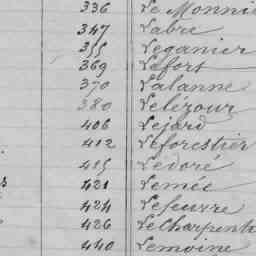 336 Le Monni
347 Labre
355 Leganier
369 Lefort
370 Lalanne
380 Lelézour
406 Lejard
412 Leforestier
415 Ledoré
421 Lemée
424 Lefeuvre
426 Le Charpenti
440 Lemoine